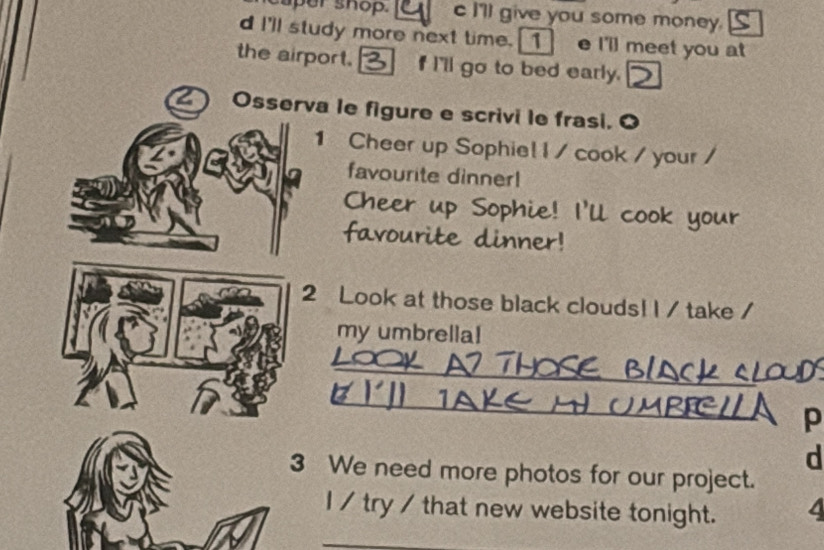 shop. 4 c I'll give you some money. 5
d I'll study more next time. 1 e I'll meet you at
the airport. 3 f I'll go to bed early. 2
2 Osserva le figure e scrivi le frasi.
1 Cheer up Sophie! I / cook / your /
favourite dinner!
Cheer up Sophie! I'll cook your
favourite dinner!
2 Look at those black clouds! I / take /
my umbrella!
LOOK AT THOSE BlACK CLOUDS
I'll TAKE MY UMBRELLA
p
d
3 We need more photos for our project.
I / try / that new website tonight.
4